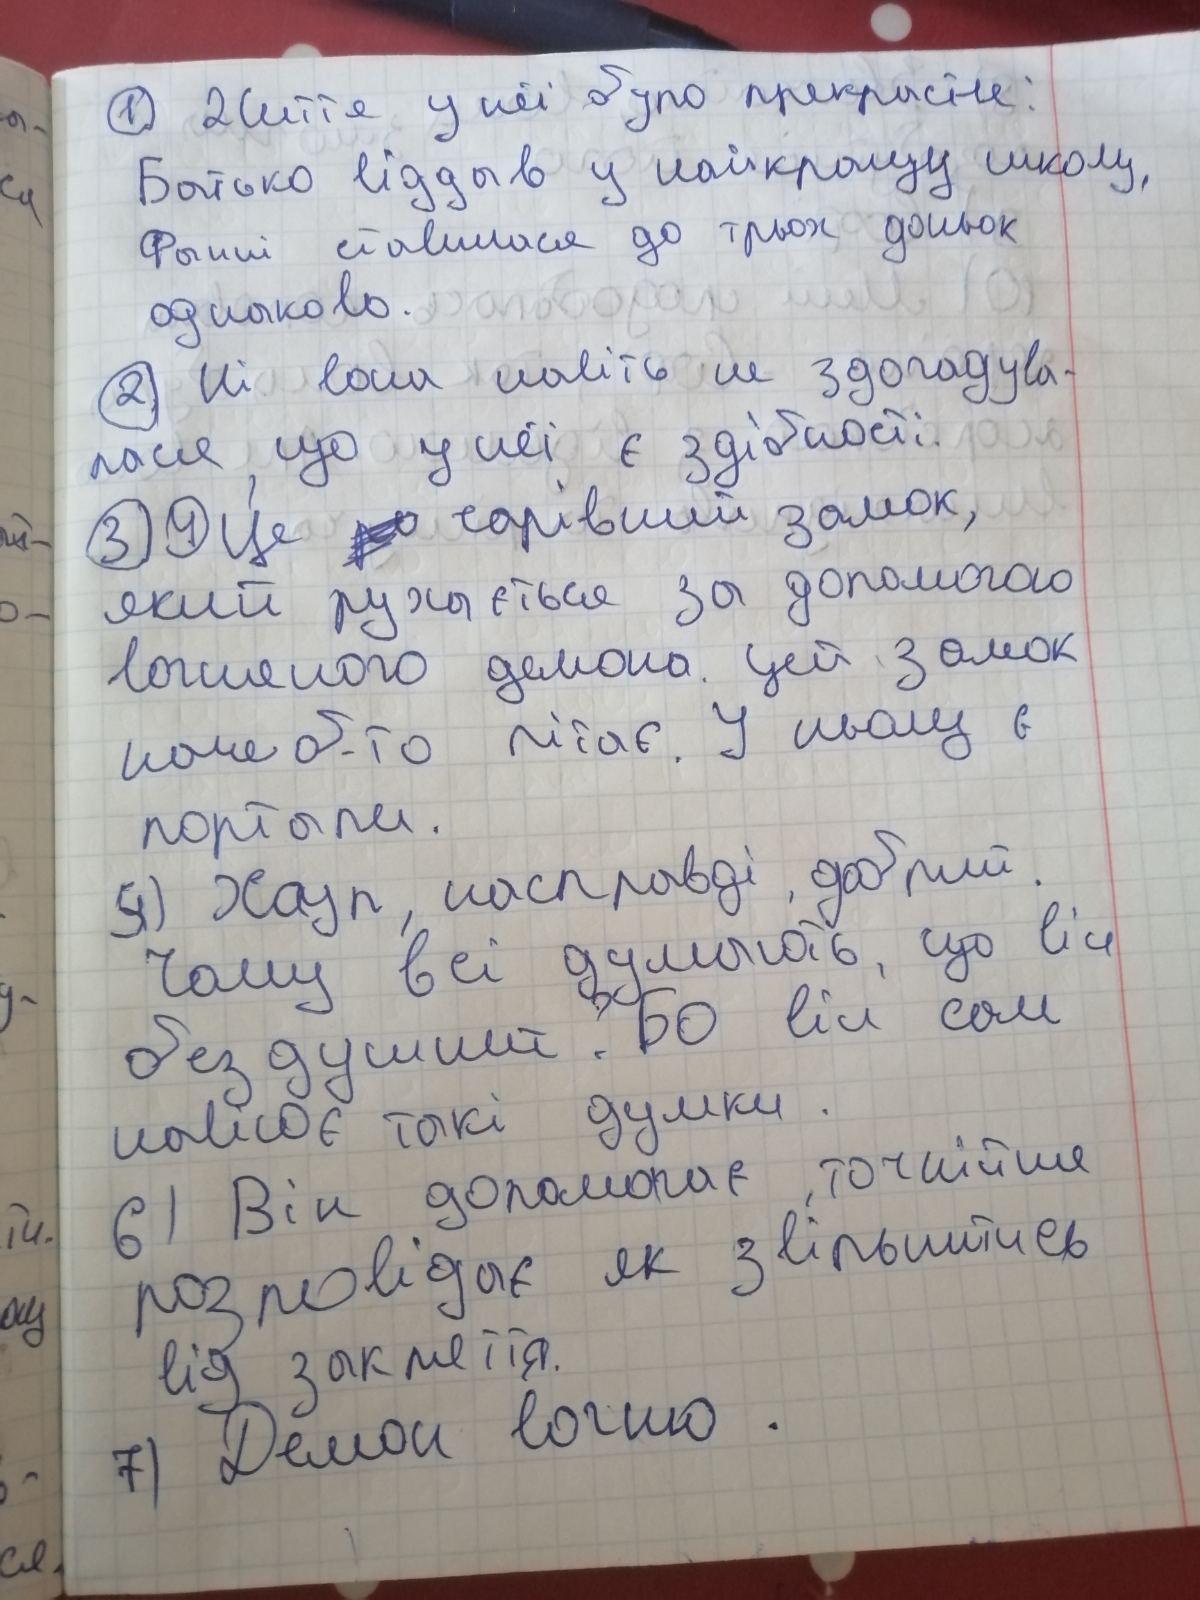 ы-
ся
1) Життя у неї було прекрасне:
Батько віддав у найкращу школу,
Фанні ставилася до трьох доньок
однаково.
2) Ні вона навіть не здогадува-
лася, що у неї є здібності.
3) 4) Це чарівний замок,
який рухається за допомогою
вогняного демона. Цей замок
наче б-то літає. У ньому є
портали.
5) Хаул, насправді, добрий.
Чому всі думають, що він
бездушний? Бо він сам
навіює такі думки.
6) Він допомагає, точнійше
розповідає як звільнитись
від закляття.
7) Демон вогню.
ся.